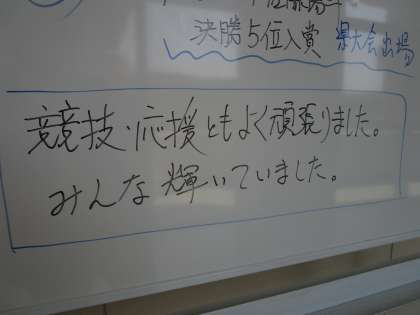 決勝5位入賞 県大会出場
競技・応援ともよく頑張りました。
みんな輝いていました。